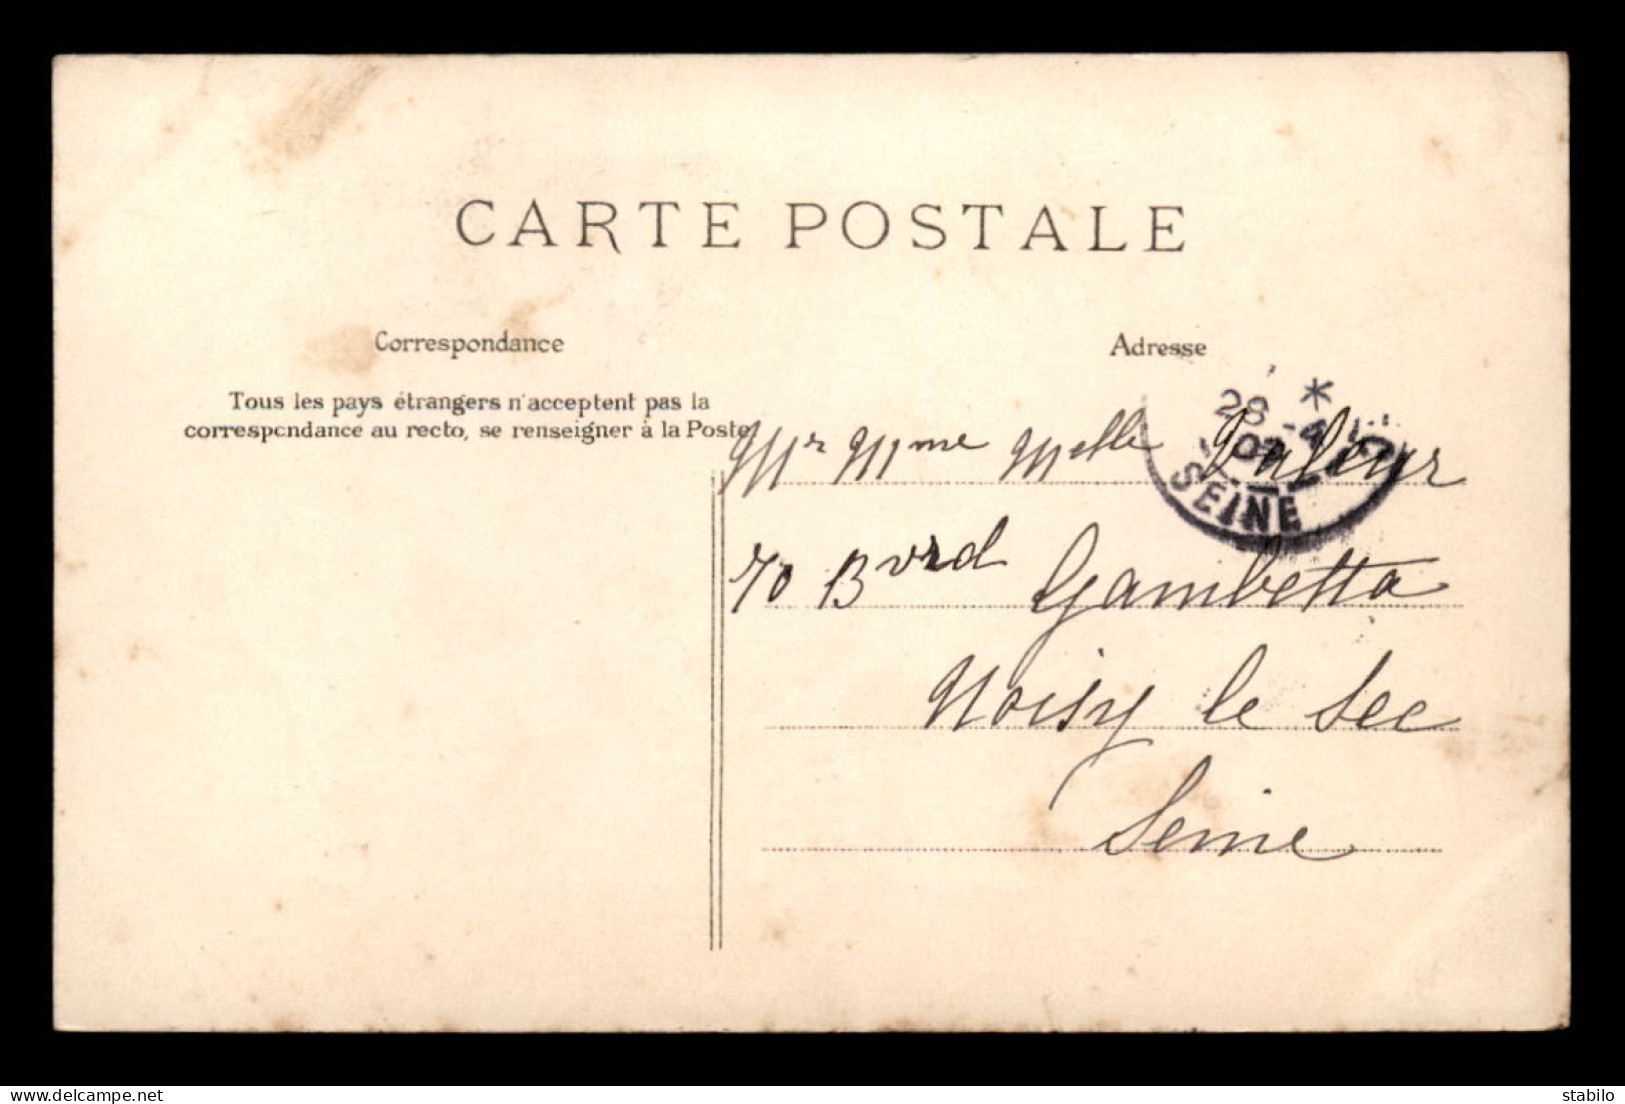 CARTE POSTALE
Correspondance
Tous les pays étrangers n'acceptent pas la
correspondance au recto, se renseigner à la Poste
Adresse
28 -4
07
SEINE
Mr Mme Melle
70 Bvrd Gambetta
Noisy le Sec
Seine
stabilo